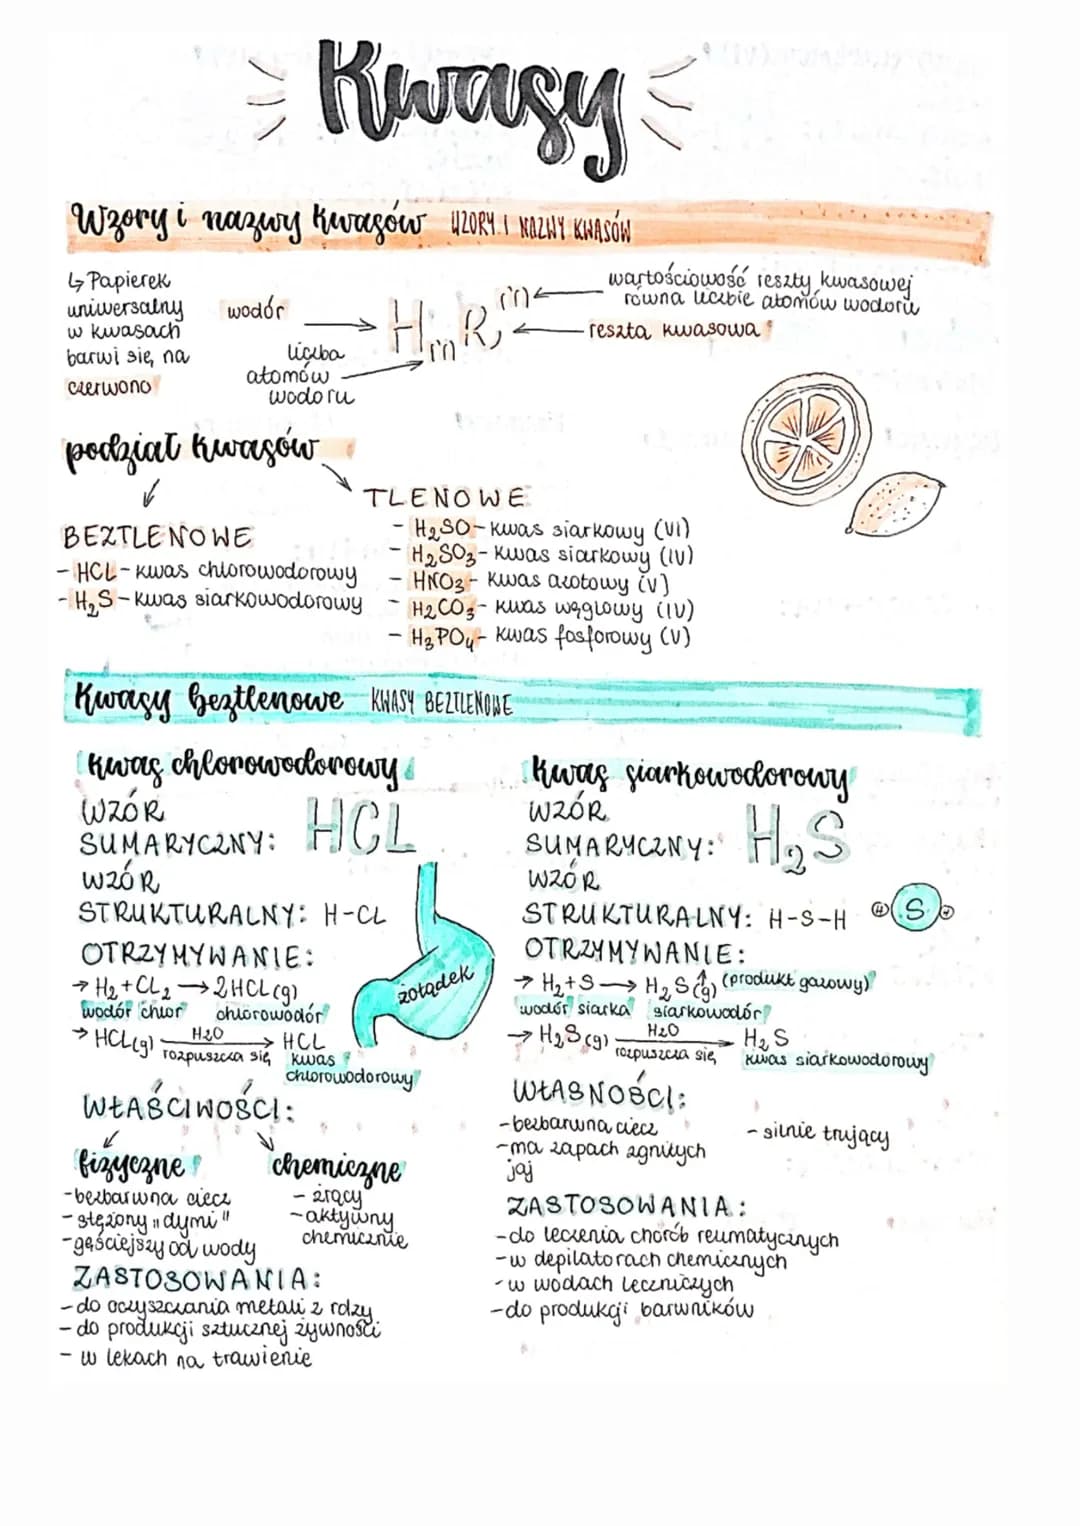 Kwasy
Wzory i nazwy kwasów WZORY I NAZWY KWASÓW
↳ Papierek
uniwersalny
w kwasach
barwi się na
czerwono
wodór
liczba
atomów
wodoru
HₘR⁽ᵐ⁾
wartościowość reszty kwasowej
równa liczbie atomów wodoru
reszta kwasowa
podział kwasów
BEZTLENOWE
- HCL - kwas chlorowodorowy
- H₂S - kwas siarkowodorowy
TLENOWE
- H₂SO - kwas siarkowy (VI)
- H₂SO₃ - kwas siarkowy (IV)
- HNO₃ - kwas azotowy (V)
- H₂CO₃ - kwas węglowy (IV)
- H₃PO₄ - kwas fosforowy (V)
Kwasy beztlenowe KWASY BEZTLENOWE
Kwas chlorowodorowy
WZÓR
SUMARYCZNY: HCL
WZÓR
STRUKTURALNY: H-CL
OTRZYMYWANIE:
→ H₂+CL₂ → 2HCL(g)
wodór chlor chlorowodór
→ HCL(g) H₂O → HCL
rozpuszcza się kwas
chlorowodorowy
żołądek
WŁAŚCIWOŚCI:
fizyczne
- bezbarwna ciecz
- stężony "dymi"
- gęściejszy od wody
chemiczne
- żrący
- aktywny
chemicznie
ZASTOSOWANIA:
- do oczyszczania metali z rdzy
- do produkcji sztucznej żywności
- w lekach na trawienie
Kwas siarkowodorowy
WZÓR
SUMARYCZNY: H₂S
WZÓR
STRUKTURALNY: H-S-H
H S H
OTRZYMYWANIE:
→ H₂+S → H₂S↑(g) (produkt gazowy)
wodór siarka siarkowodór
→ H₂S(g) H₂O → H₂S
rozpuszcza się kwas siarkowodorowy
WŁASNOŚCI:
- bezbarwna ciecz
- ma zapach zgniłych
jaj
- silnie trujący
ZASTOSOWANIA:
- do leczenia chorób reumatycznych
- w depilatorach chemicznych
- w wodach leczniczych
- do produkcji barwników